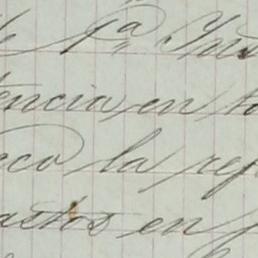 1ª Ins
encia, en to
eco la rep
astos en